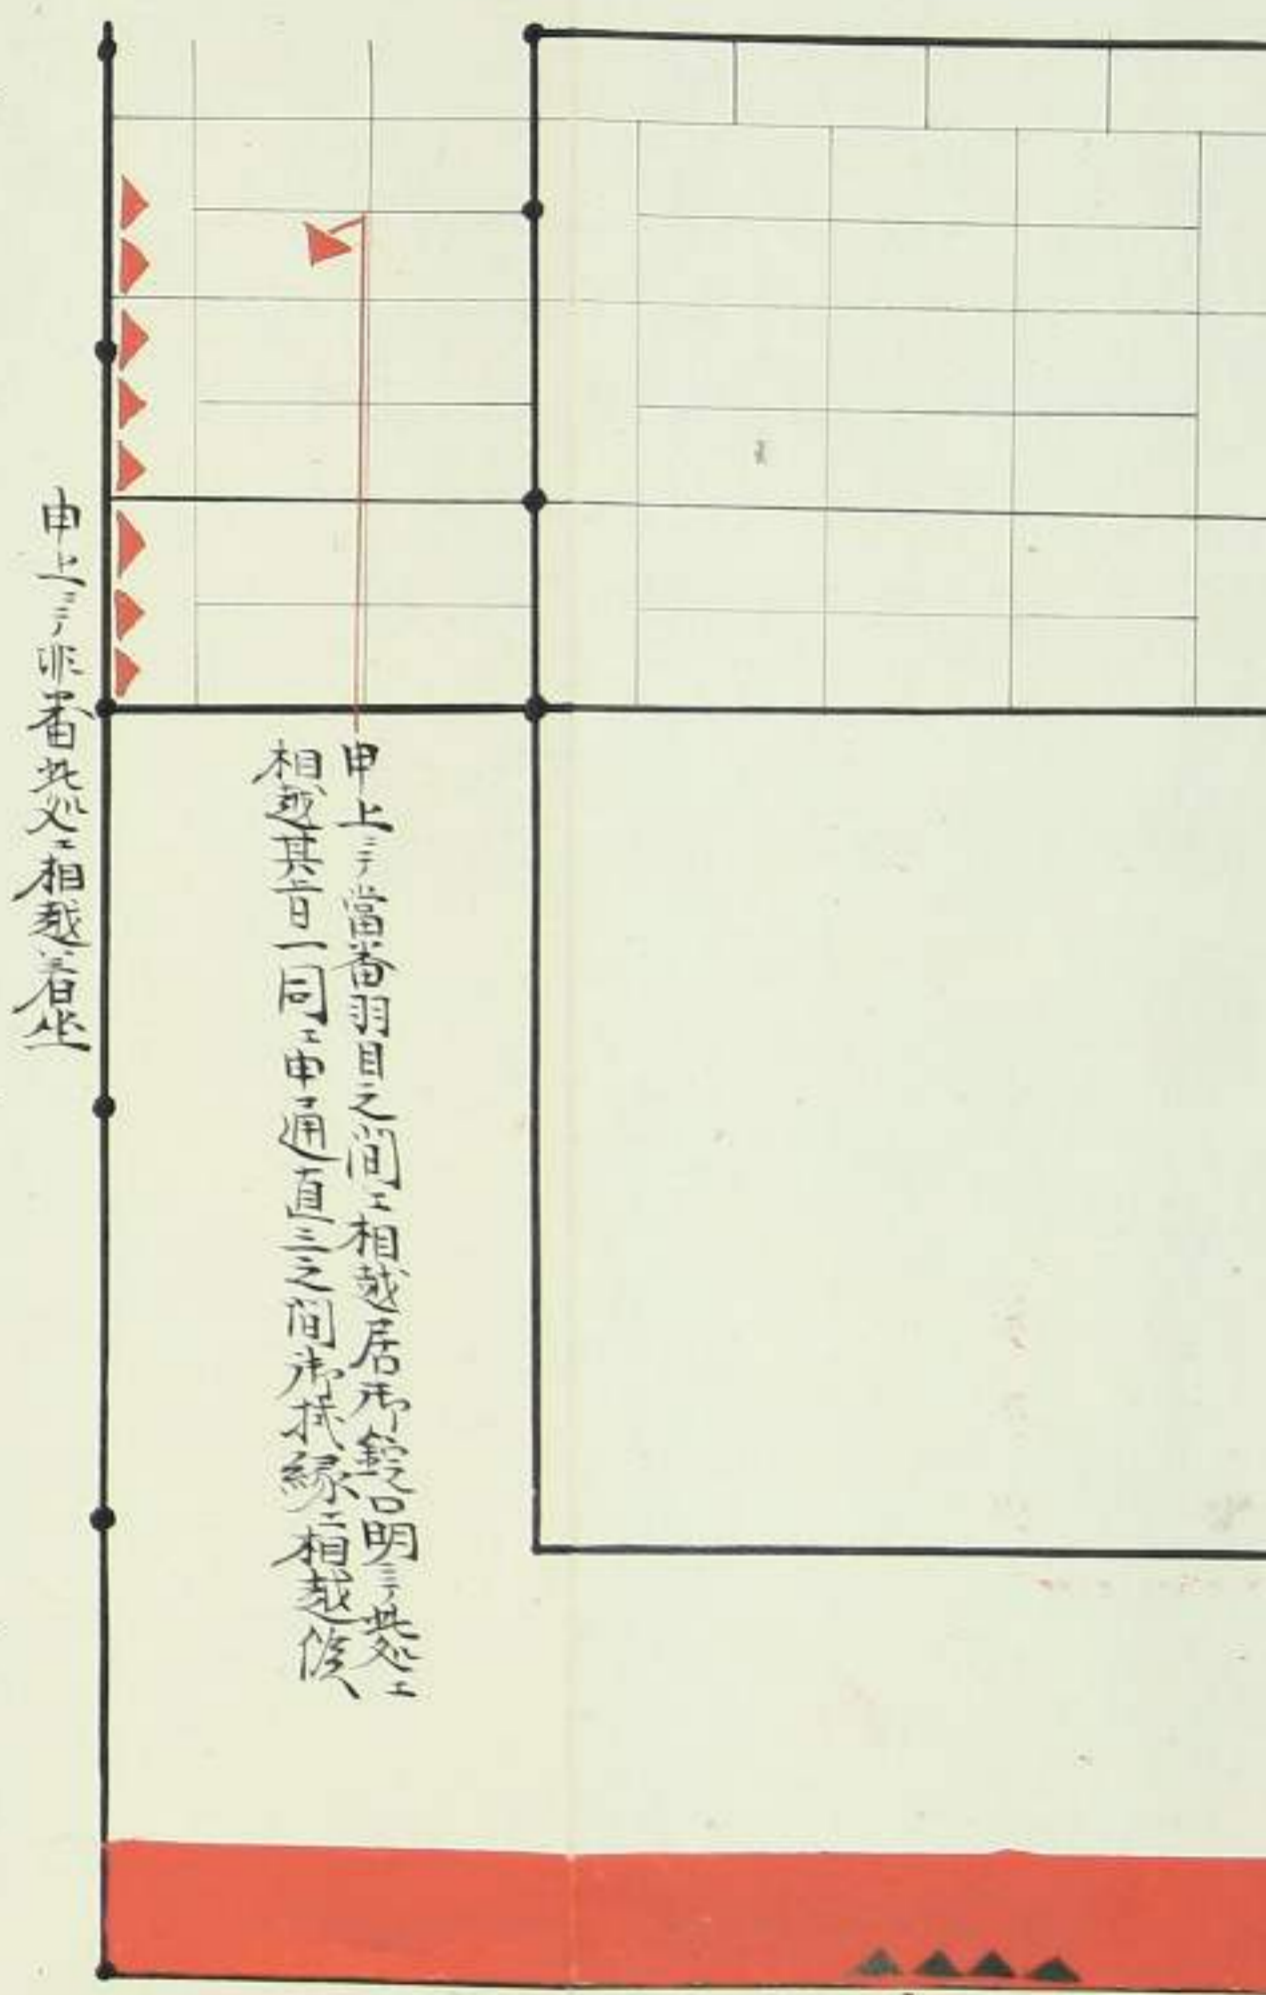 申上ニ而當番羽目之間江相越居御錠口明ニ而此処江
相越其旨一同江申通直ニ之間御拭縁江相越候
申上ニ而非番此処江相越着坐